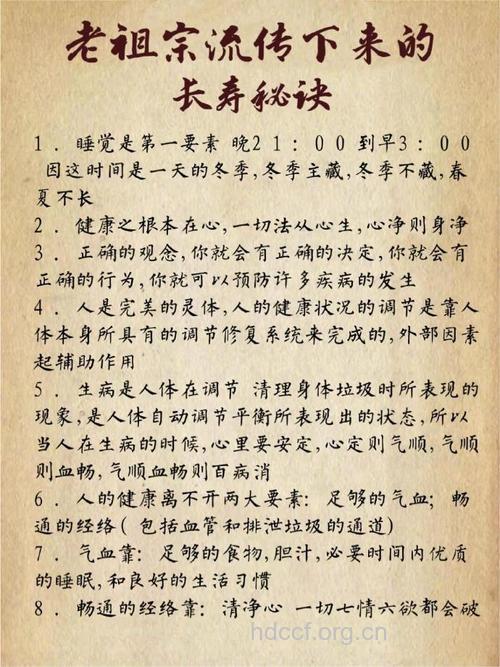 老祖宗流传下来的
长寿秘诀
1．睡觉是第一要素 晚21：00到早3：00
因这时间是一天的冬季,冬季主藏,冬季不藏,春
夏不长
2．健康之根本在心,一切法从心生,心净则身净
3．正确的观念,你就会有正确的决定,你就会有
正确的行为,你就可以预防许多疾病的发生
4．人是完美的灵体,人的健康状况的调节是靠人
体本身所具有的调节修复系统来完成的,外部因素
起辅助作用
5．生病是人体在调节 清理身体垃圾时所表现的
现象,是人体自动调节平衡所表现出的状态,所以
当人在生病的时候,心里要安定,心定则气顺,气顺
则血畅,气顺血畅则百病消
6．人的健康离不开两大要素：足够的气血；畅
通的经络(包括血管和排泄垃圾的通道)
7．气血靠：足够的食物,胆汁,必要时间内优质
的睡眠,和良好的生活习惯
8．畅通的经络靠：清净心 一切七情六欲都会破
hdccf.org.cn